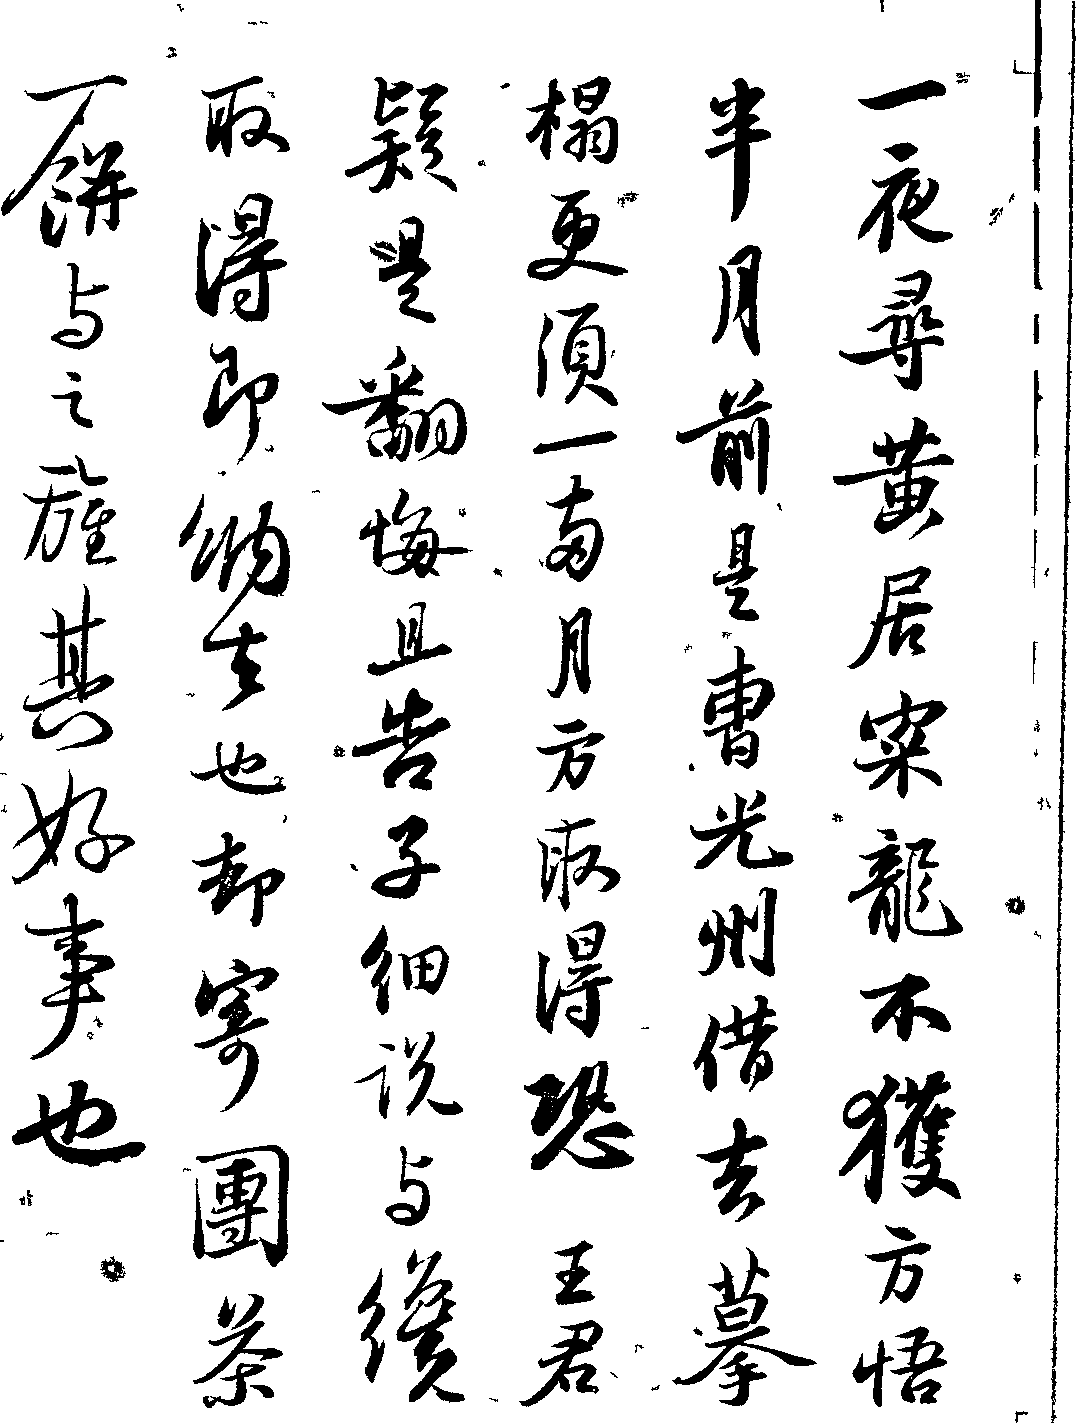 一夜尋黄居寀龍不獲方悟
半月前是曹光州借去摹
榻更須一兩月方取得恐王君
疑是翻悔且告子細説与纔
取得即納去也却寄團茶
一餅与之旌其好事也